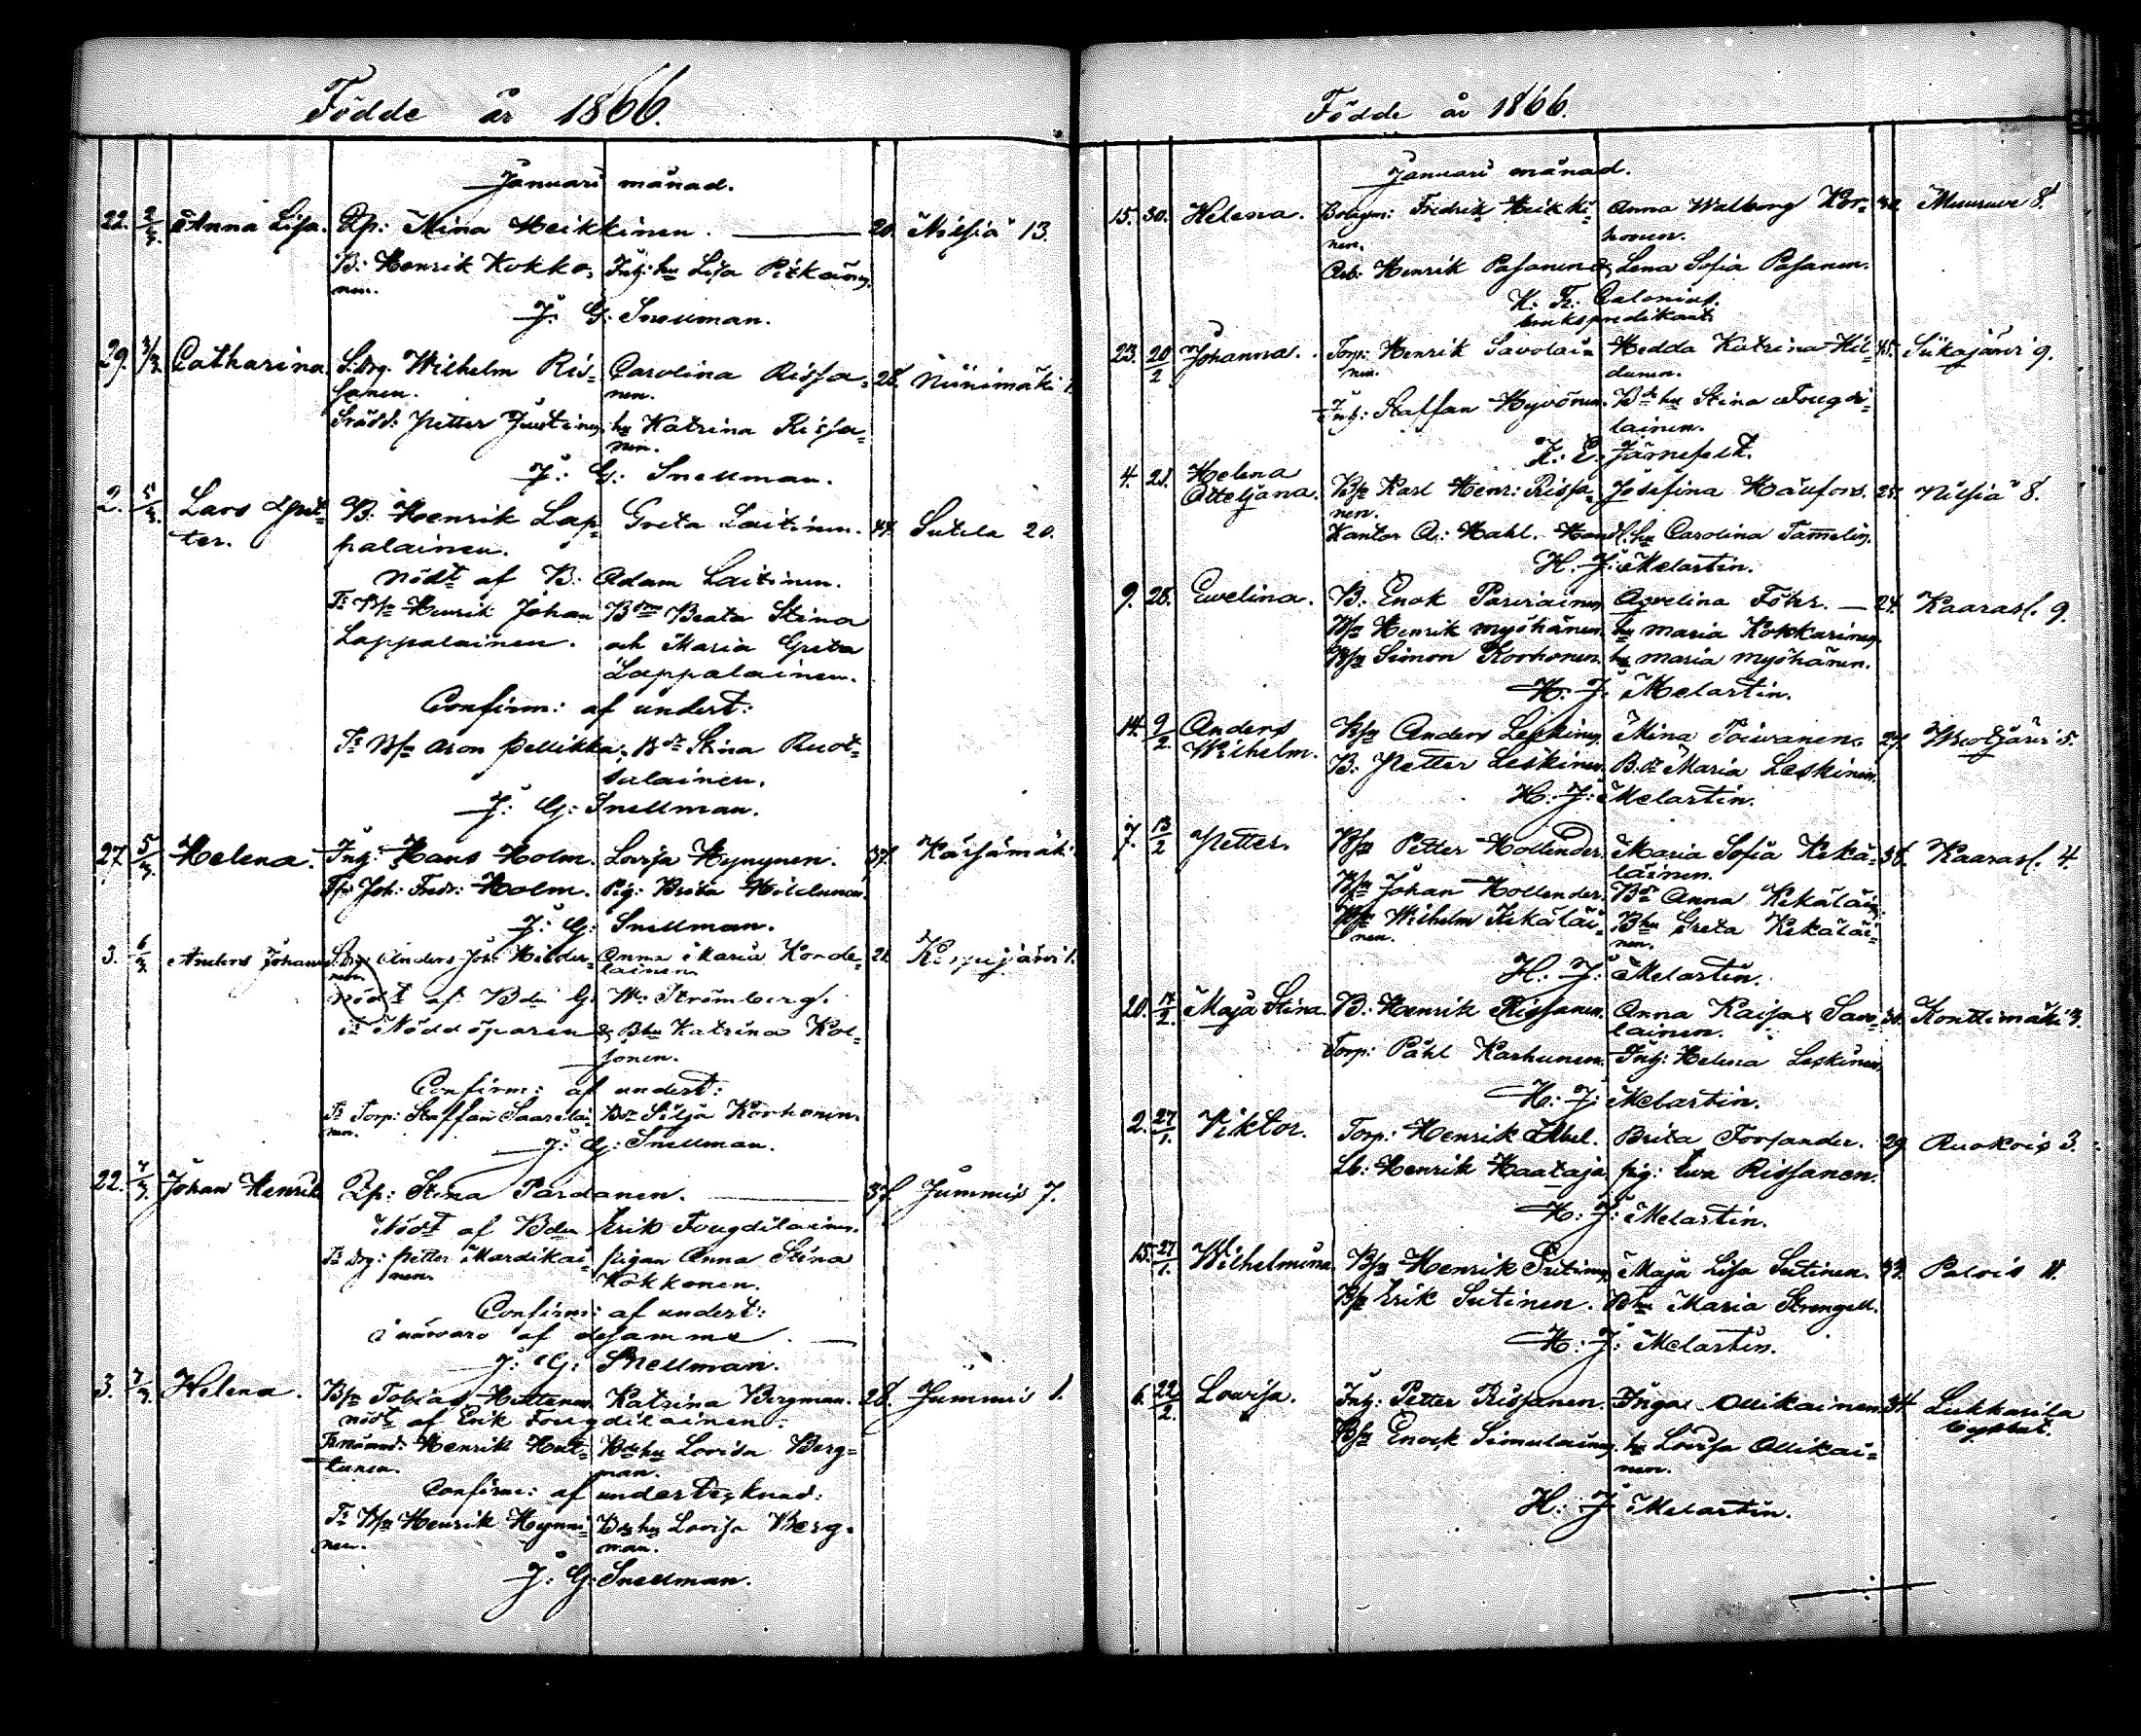 Födde år 1866.
Januari månad.
22. 2/3. Anna Lisa. Qp: Mina Heikkinen. 20. Nilsiä 13.
B: Henrik Kokko- Inh: hu Lisa Pitkänen.
nen.
J: G: Snellman.
29. 3/3. Catharina. S.Drg. Wilhelm Ris- Carolina Rissa- 28. Niinimäki 1.
sanen. nen.
Petter Justinen hu Katrina Rissa-
nen.
J: G: Snellman.
2. 5/3. Lars Pet- B. Henrik Lap- Greta Laitinen. 44. Sutela 20.
ter. palainen.
Nödt af B: Adam Laitinen.
Ts Bsn Henrik Johan Bdtr Beata Stina
Lappalainen. och Maria Greta
Lappalainen.
Confirm: af undert:
Ts Bsn Aron Pellikka, Bdr Stina Ruot-
salainen.
J: G: Snellman.
27. 5/3. Helena. Inh: Hans Holm. Lovisa Hynynen. 37. Kärsämäki
Joh: Fredr: Holm. Pig: Brita Hildunen.
J: G: Snellman.
3. 6/3. Anders Johan S.Drg: Anders Joh: Hilder- Anna Maria Konde- 21.
nen lainen
Nödt af Bdn G: W: Strömberg.
Ts Nöddöparen & Bhu Katrina Kol-
jonen.
Confirm: af undert:
Ts Torp: Staffan Saarelai- Bdr Silja Korhonen.
nen.
J: G: Snellman.
22. 7/3. Johan Henrik Qp: Stina Pardanen. 37. Jummis 7.
Nödt af Bdn Erik Fougdilainen.
Ts Drg: Petter Mardikai- pigan Anna Stina
nen. Kokkonen.
Confirm: af undert:
i närvaro af desamma.
J: G: Snellman.
3. 7/3. Helena. Bsn Tobias Huttunen. Katrina Bergman. 28. Jummis 1.
nödt af Erik Fougdilainen.
Henrik Hut- Bdehu Lovisa Berg-
tunen. man.
Confirm: af undertecknad:
Ts Bsn Henrik Hynni- Bdehu Lovisa Berg-
nen. man.
J: G: Snellman.
Födde år 1866.
Januari månad.
15. 30. Helena. Bolagsm: Fredrik Heikki- Anna Walborg Kor- 32. Muuruve 8.
nen. honen.
Arb: Henrik Pasanen & Lena Sofia Pasanen.
K: Fr: Calonius.
brukspredikant.
23. 20/2 Johanna. Torp: Henrik Savolai- Hedda Katrina Hil- 45. Siikajärvi 9.
nen. dunen.
Inh: Staffan Hyvönen. Bdehu Stina Fougdi-
lainen.
K: E: Järnefelt.
4. 21. Helena Bsn Karl Henr: Rissa- Josefina Häufors. 25. Nilsiä 8.
Otteljana. nen.
Kantor A: Hahl. Handl.hu Carolina Tamelin.
H: J: Melartin.
9. 28. Ewelina. B: Enok Parviainen Agvelina Föhr. 24. Kaarasl. 9.
Bsn Henrik Myöhänen. hu Maria Kokkarinen
Bsn Simon Korhonen. hu Maria Myöhänen.
H: J: Melartin.
14. 9/2. Anders Bsn Anders Leskinen. Mina Toiwanen. 27. Wuotjärvi 5.
Wilhelm. B: Petter Leskinen. B.dr Maria Leskinen.
H: J: Melartin.
7. 13/2 Petter. Bsn Petter Hollender. Maria Sofia Kekä- 36. Kaarasl. 4.
läinen.
Bsn Johan Hollender. Bdr Anna Kekäläin:
Bsn Wilhelm Kekäläi- Bhu Greta Kekäläi-
nen. nen.
H: J: Melartin.
20. 14/2. Maja Stina. B: Henrik Rissanen. Anna Kaisa Savo- 30. Konttimäki 3.
lainen.
Torp: Påhl Karhunen. Inh: Helena Leskinen.
H: J: Melartin.
2. 27/1. Viktor. Torp: Henrik Abel. Brita Forsander. 29. Ruokois 3.
Lb: Henrik Haataja pig: Ewa Rissanen.
H: J: Melartin.
15. 27/1. Wilhelmina. Bsn Henrik Sutinen Maja Lisa Sutinen. 33. Palois 11.
Bsn Erik Sutinen. Bhu Maria Strengell.
H: J: Melartin.
6. 22/2. Lovisa. Inh: Petter Rissanen. Inga Ollikainen 34. Lukkarila
Bsn Enock Simulainen hu Lovisa Ollikai-
nen.
H: J: Melartin.